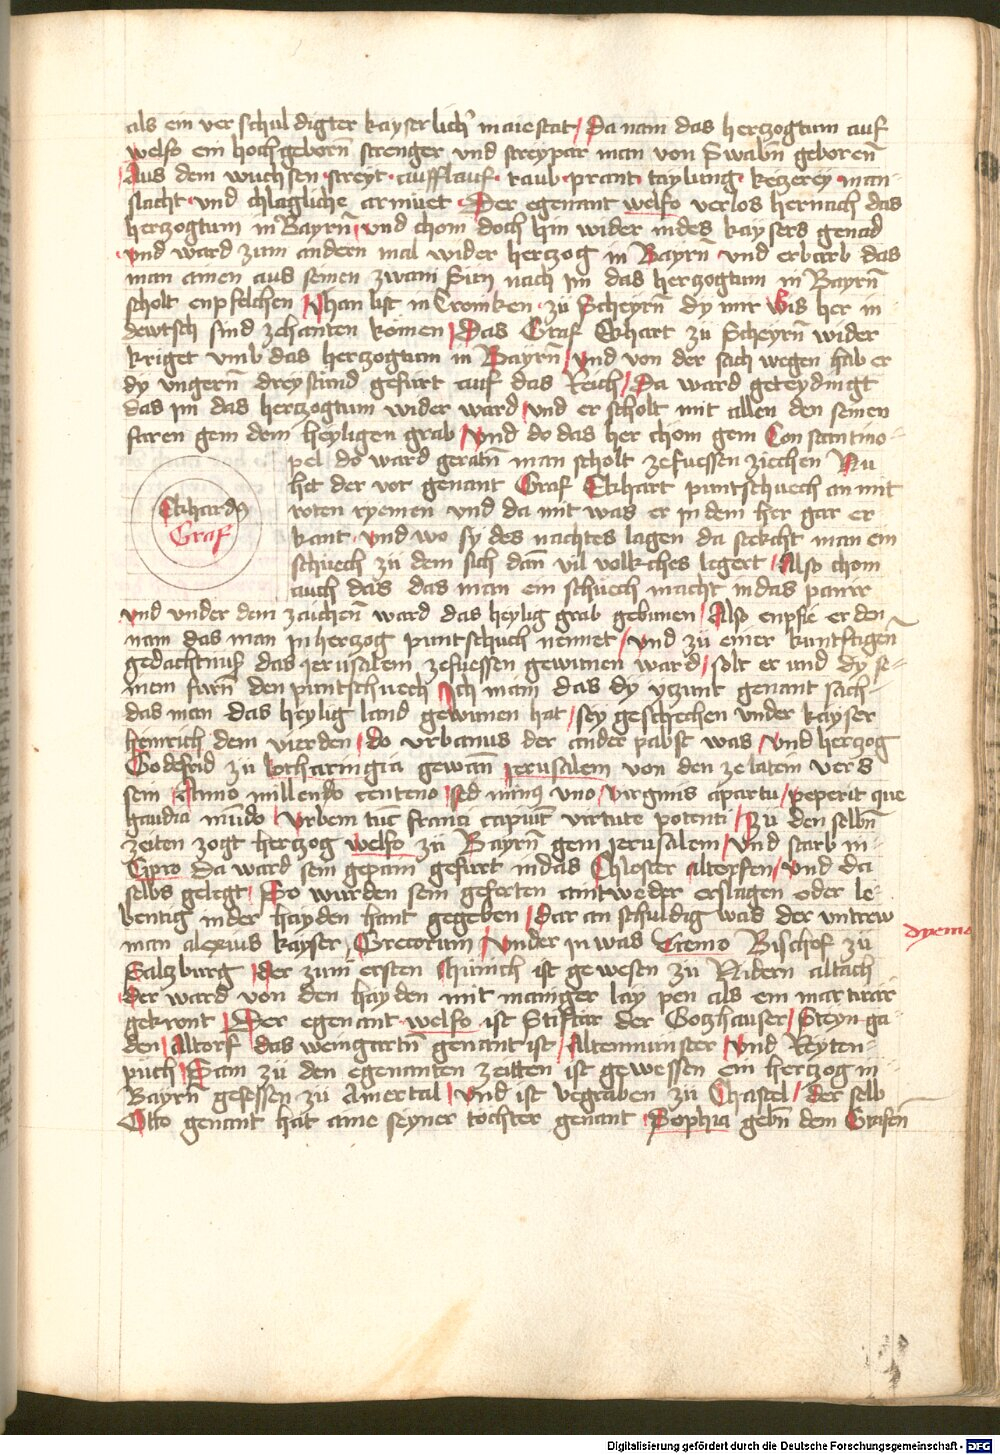 als ein ver schuldigter kayserlich' maiestat / Da nam das herczogtum auf
welfo ein hochgeborn̄ strenger vnd streypar man von Swabn̄ geboren̄
Aus dem wuchsen streyt · aufflauf · raub · prant · taylung · keczerey · man
slacht · vnd chlagliche armuet · Der egenant welfo verlos hernach das
herczogtum in Bayrn̄ / vnd chom doch hin wider indes kaysers genad
vnd ward zum andern mal wider herczog in Bayrn̄ · vnd erbarb das
man ainen aus seinen zwain Sun nach im das herczogtum in Bayrn̄
scholt enpfelchen / Man list in Croniken · zu Scheyrn̄ dy mir bis her in
dewtsch sind zehanten komen / Das Graf Ekhart zu Scheyrn̄ wider
krieget vmb das herczogtum in Bayrn̄ / vnd von der sach wegen hab er
dy vngern̄ dreystund gefurt auf das Reich / Da ward geteydingt
das im das herczogtum wider ward / vnd er scholt mit allen den seinen
faren gem dem heyligen grab / vnd do das her chom gem Constantino-
pel do ward geratn̄ man scholt zefuessen ziechen Nu
het der vor genant Graf Ekhart puntschuech an mit
roten ryemen vnd da mit was er in dem her gar er
kant · vnd wo sy des nachtes lagen da stekcht man ein
schuech zu dem sich dan̄ vil volkches legert / Also chom
auch das das man ein schuech macht indas panir
Ekhardꝰ
Graf
vnd vnder dem zaichen̄ ward das heylig grab gebunen / Also enpfie er den
nam das man in herczog puntschuch nennet / vnd zu einer kunftigen̄
gedachtnuß das Jerusalem zefuessen gewunen ward / solt er und dy se-
inem furn̄ den puntschuech Ich main das dy yczunt genant sach
das man das heylig land gewunen hat / sey geschechen vnder kayser
heinrich dem vierden / do vrbanus der ander pabst was / vnd herczog
Godefrid zu lotharingia gewan̄ Jerusalem von den ze latein vers
sein Anno milleno centeno / sed minꝰ vno / virginis apartu / peperit que
gaudia mu̅do / Vrbem tu̅c franci capiu̅t virtute potenti / Zu den selbn̄
zeiten zogt herczog welfo zu Bayrn̄ gem Jerusalem / vnd starb in
Cipro da ward sein gepain gefurt indas Chloster altorfen / vnd da
selbs gelegt / So wurden sein geferten aintweder erslagen oder le-
bentig inder hayden hant gegeben / dar an schuldig was der vntrew
man alexius kayser Grecorum / vnder in was Tiemo Bischof zu
dyemo
Salzburg / der zum ersten Munich ist gewesen zu Nidern altach
der ward von den hayden mit maniger lay pen als ein martrar
gekront / Der egenant welfo ist Stiftar der Goczhauser / Steyn ga-
den / Altorf das weingartn̄ genant ist / Altenmunster / vnd Reyten-
puch / Sam zu den egenanten zeitten ist gewessen ein herczog in
Bayrn̄ gesessen zu Amertal / vnd ist vegraben zu Chastel / der selb
Otto genant hat aine seyner tochter genant Sophia gebn̄ dem Grafen̄
Digitalisierung gefördert durch die Deutsche Forschungsgemeinschaft - DFG